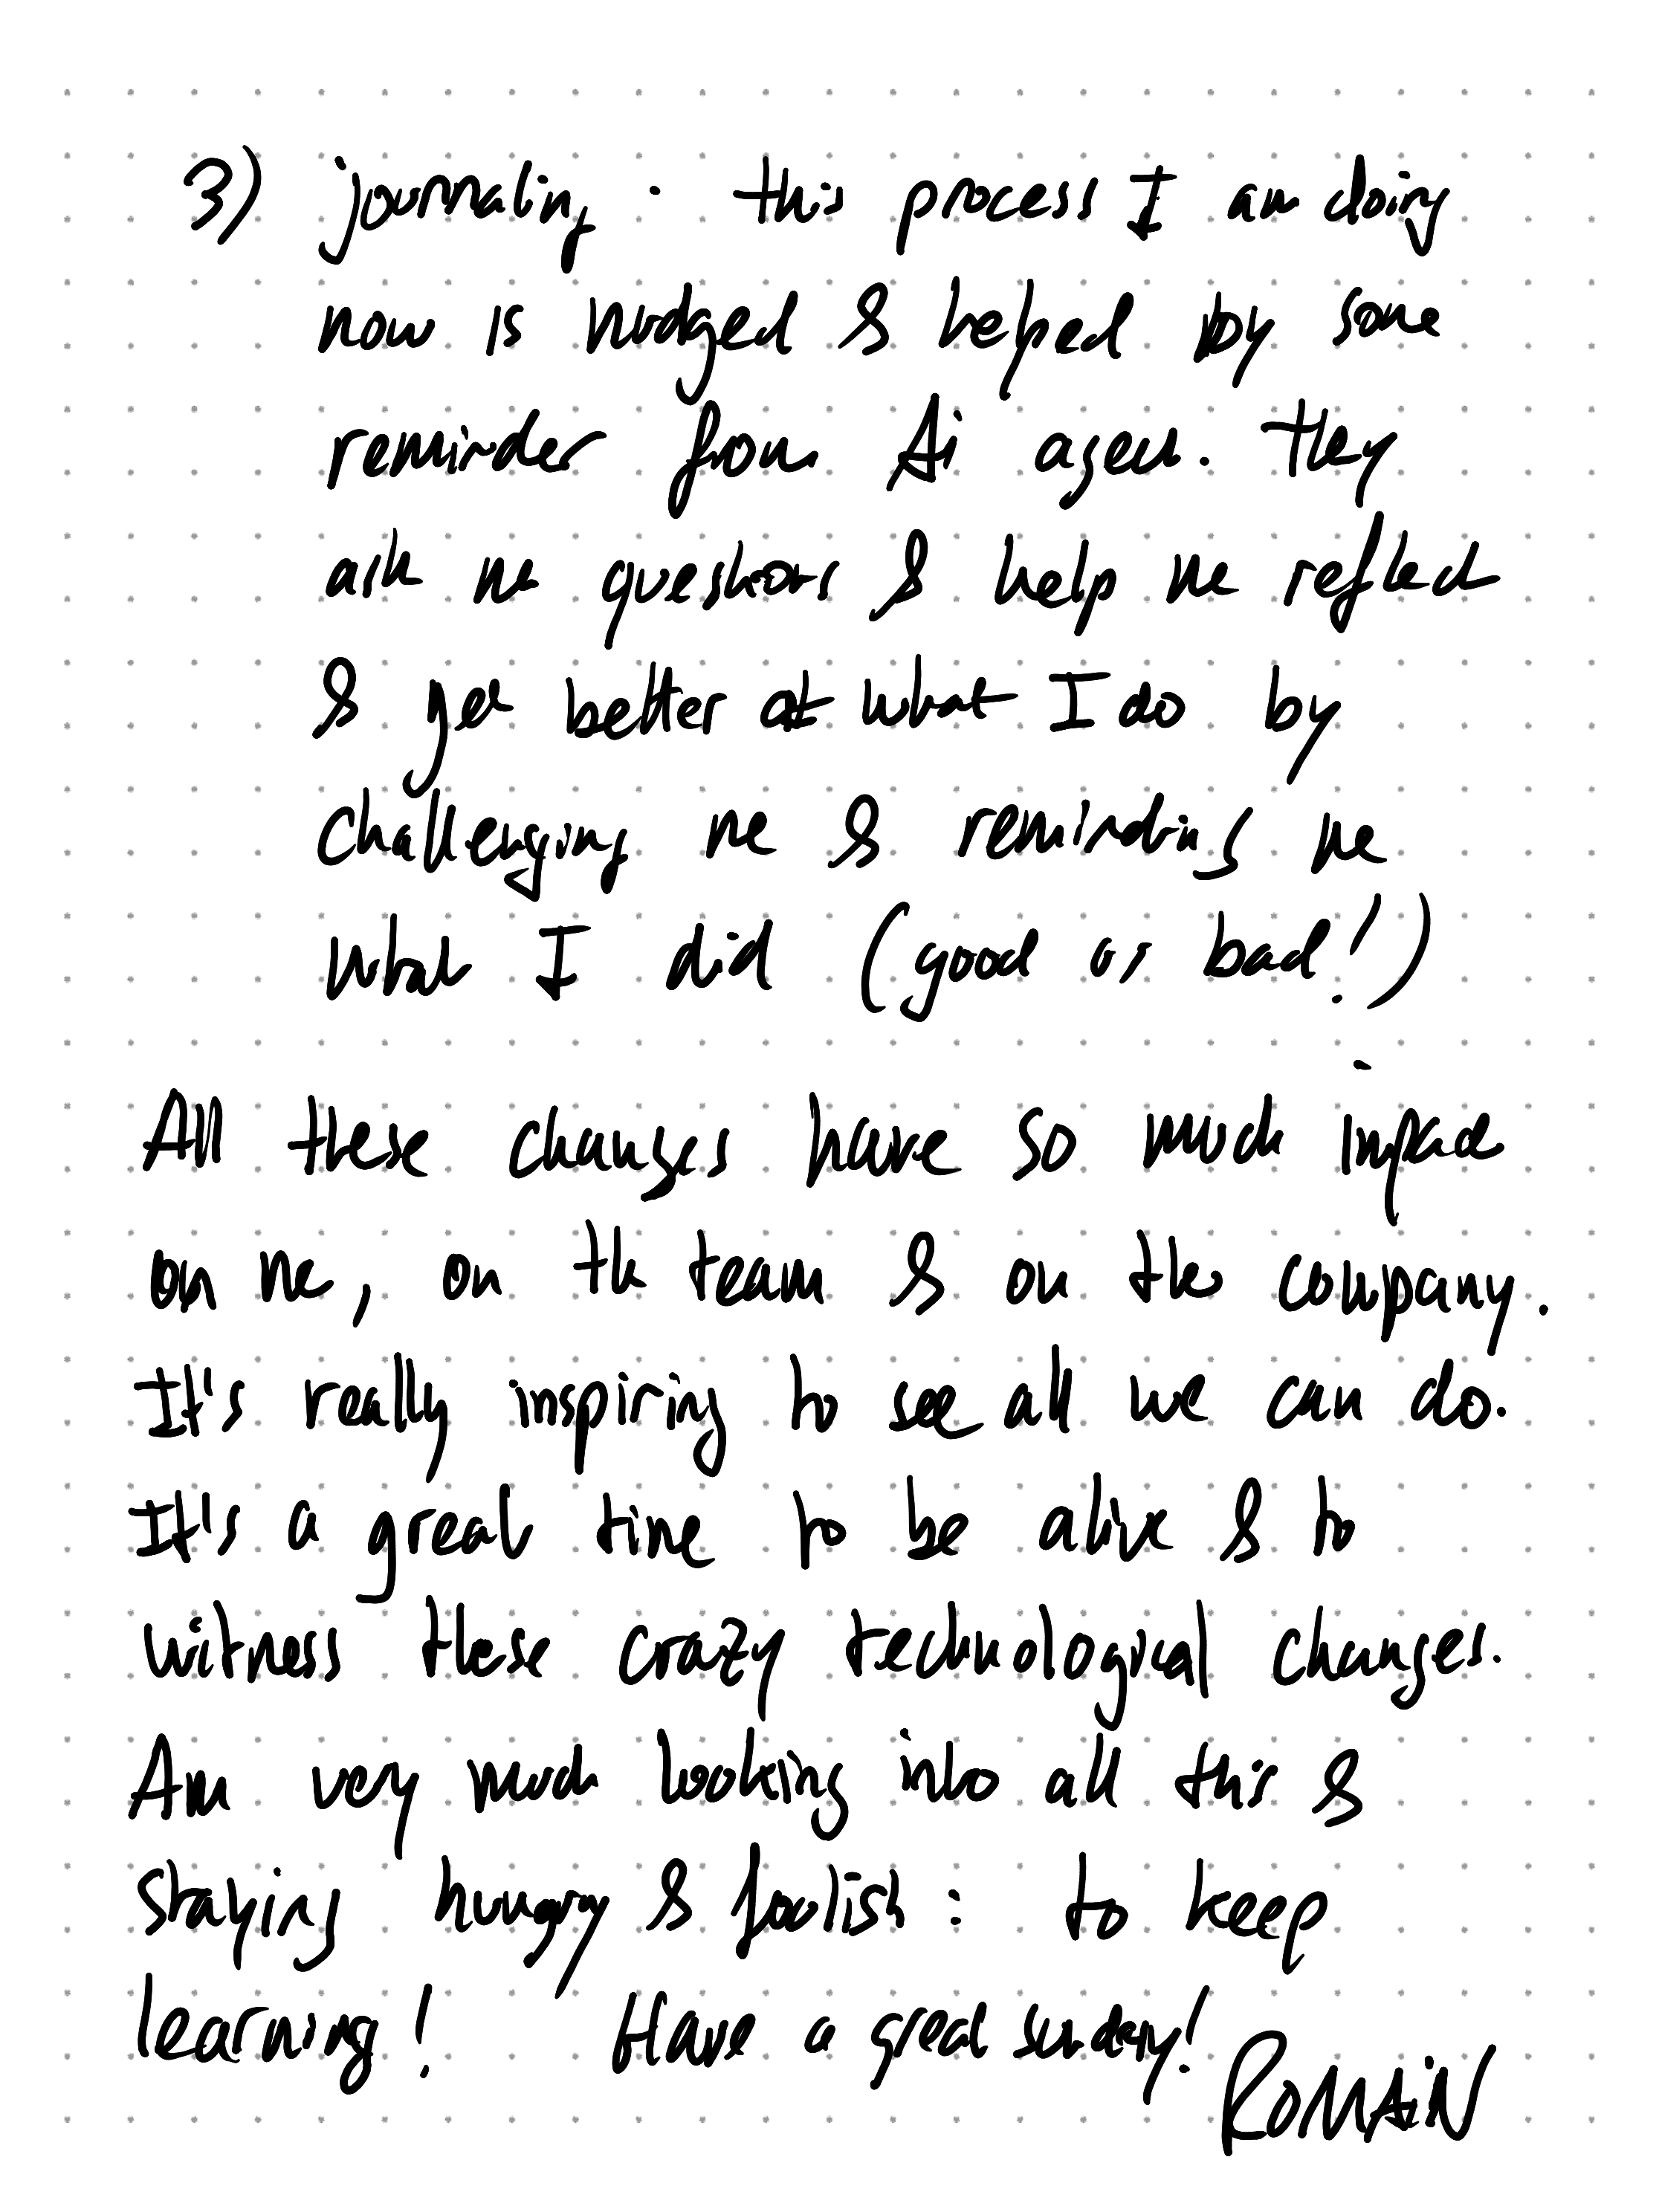 3) journaling : this process I am doing
now is nudged & helped by some
reminder from Ai agent. They
ask me questions & help me reflect
& get better at what I do by
challenging me & reminding me
what I did (good or bad!)
All these changes have so much impact
on me, on the team & on the company.
It's really inspiring to see all we can do.
It's a great time to be alive & to
witness these crazy technological changes.
Am very much looking into all this &
staying hungry & foolish : to keep
learning! Have a great sunday!
ROMAiN